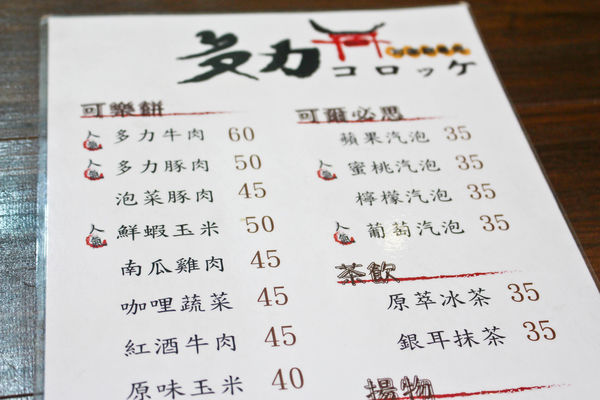 多力
コロッケ
可樂餅
人氣 多力牛肉 60
人氣 多力豚肉 50
泡菜豚肉 45
人氣 鮮蝦玉米 50
南瓜雞肉 45
咖哩蔬菜 45
紅酒牛肉 45
原味玉米 40
可爾必思
蘋果汽泡 35
人氣 蜜桃汽泡 35
檸檬汽泡 35
人氣 葡萄汽泡 35
茶飲
原萃冰茶 35
銀耳抹茶 35
揚物